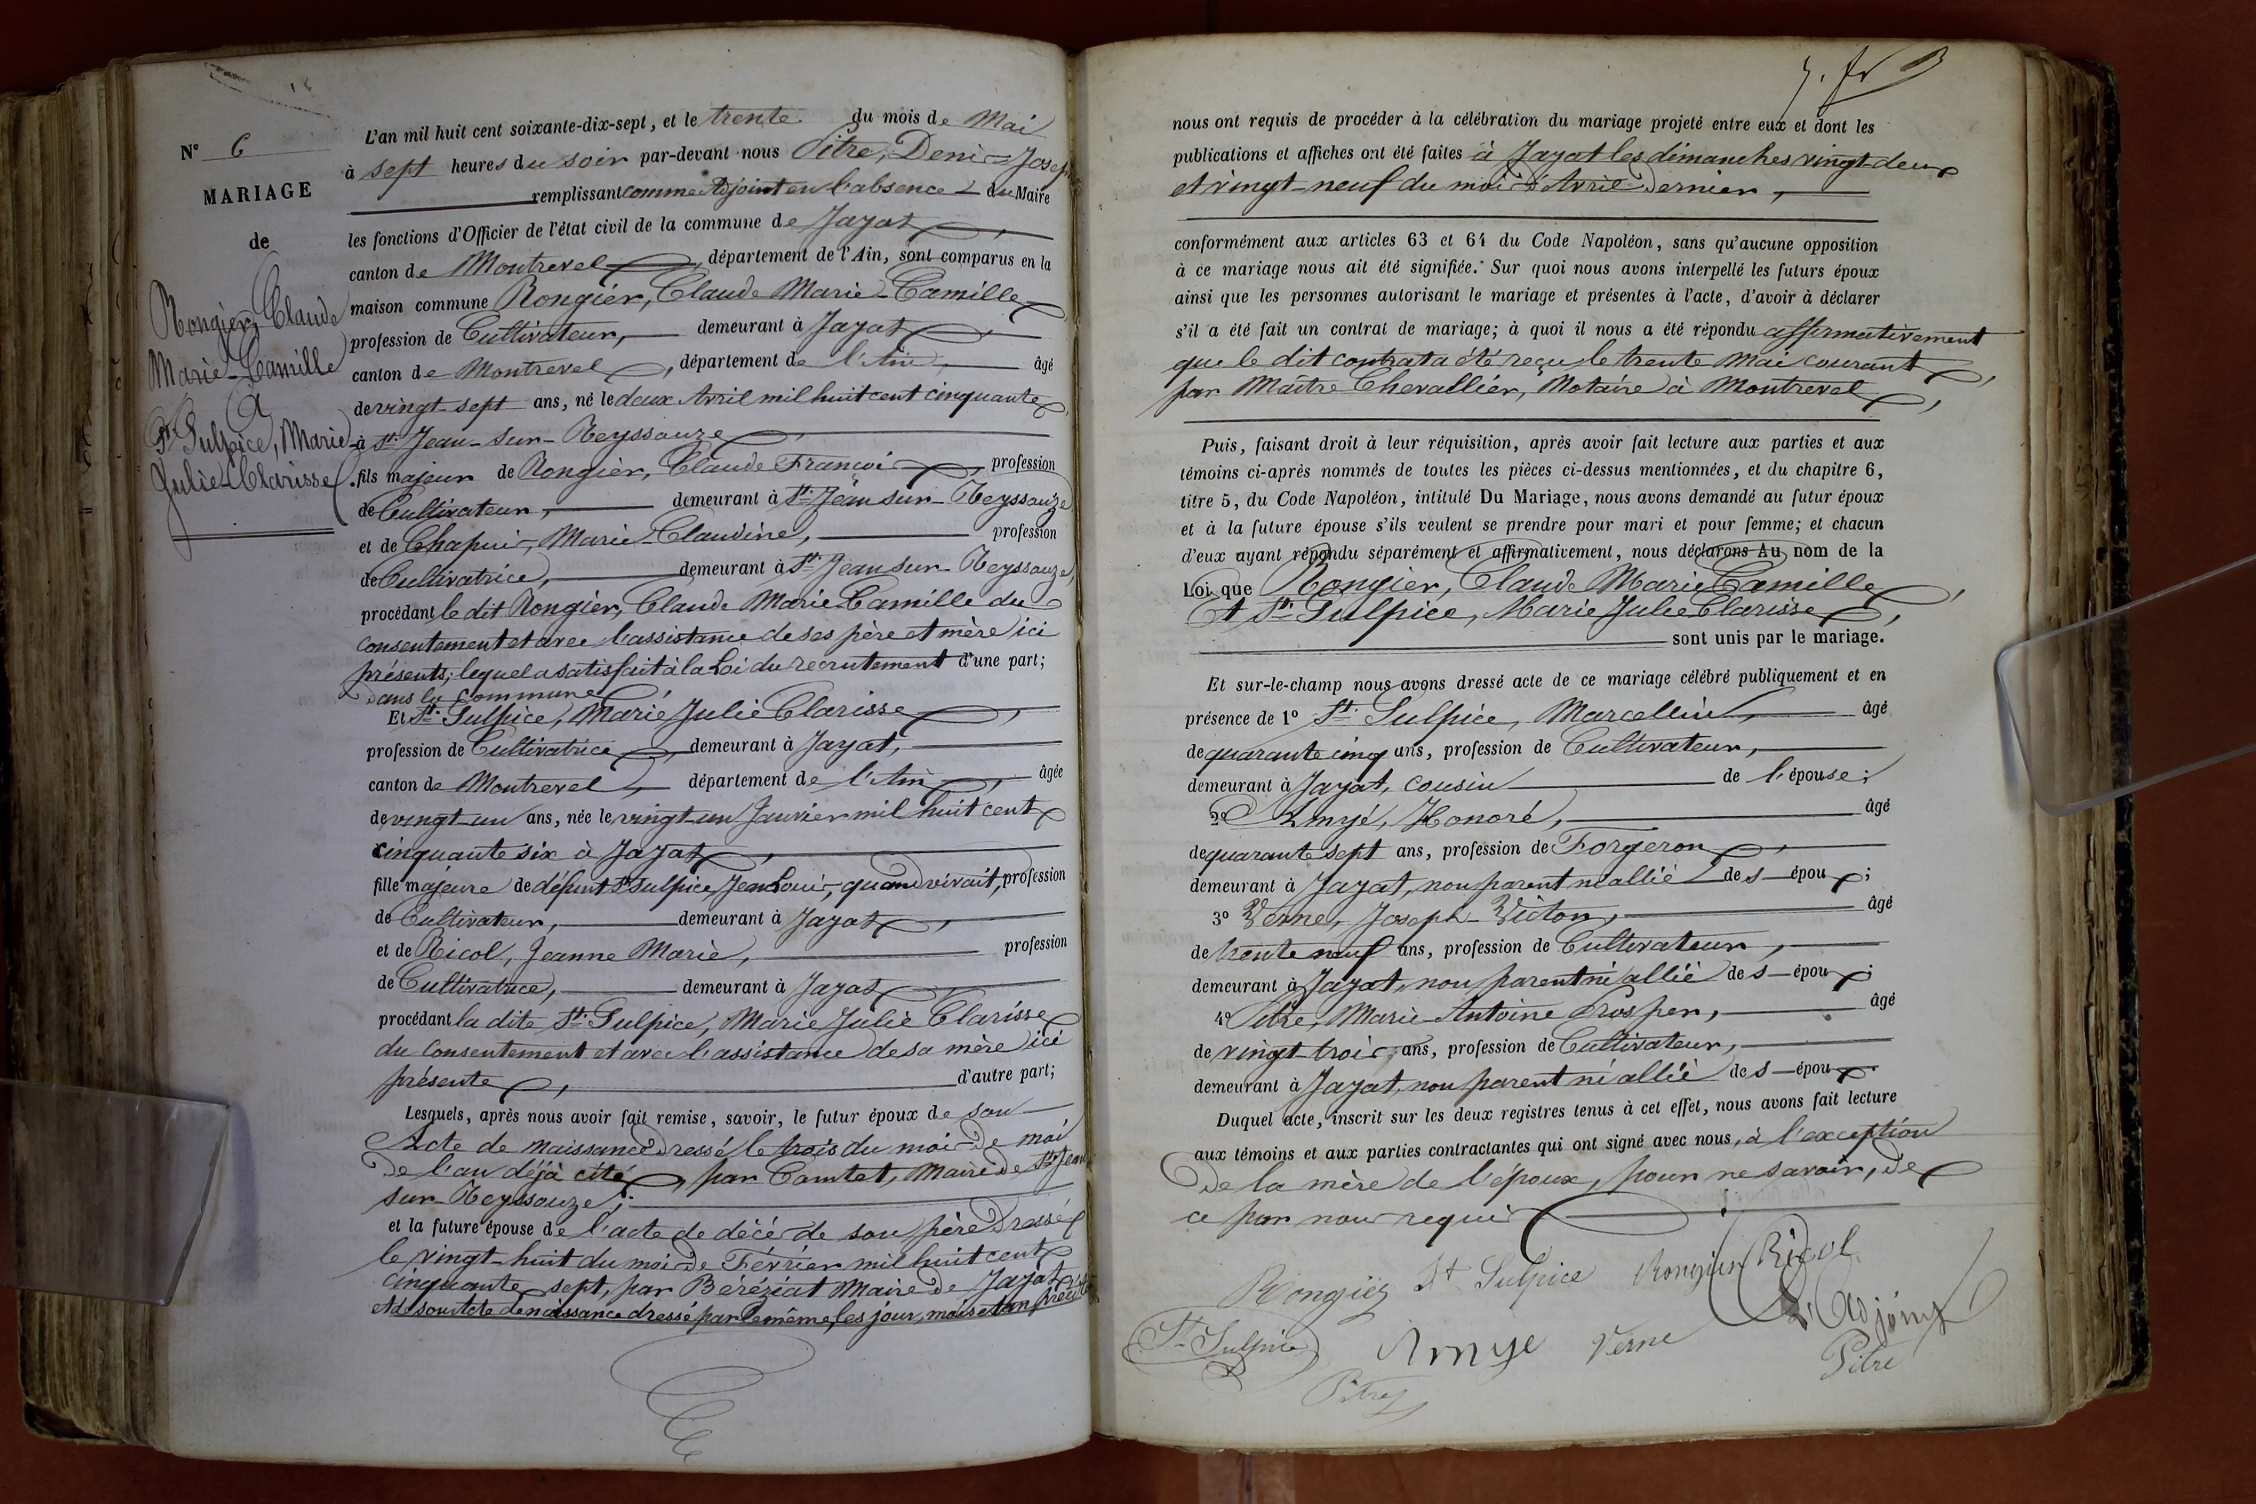 N° 6
MARIAGE
de
Rongier, Claude
Marie-Camille
Et
St Sulpice, Marie
Julie-Clarisse
L'an mil huit cent soixante-dix-sept, et le trente du mois de Mai
à sept heures du soir par-devant nous Pitre, Denis-Joseph
remplissant comme adjoint en l'absence du Maire
les fonctions d'Officier de l'état civil de la commune de Jayat,
canton de Montrevel, département de l'Ain, sont comparus en la
maison commune Rongier, Claude Marie-Camille
profession de Cultivateur, demeurant à Jayat,
canton de Montrevel, département de l'Ain, âgé
de vingt-sept ans, né le deux Avril mil huit cent cinquante,
à St Jean-sur-Reyssouze,
fils majeur de Rongier, Claude François, profession
de Cultivateur, demeurant à St Jean sur-Reyssouze
et de Chapuis, Marie-Claudine, profession
de Cultivatrice, demeurant à St Jean sur-Reyssouze,
procédant le dit Rongier, Claude Marie-Camille du
consentement et avec l'assistance de ses père et mère ici
présents; lequel a satisfait à la Loi du recrutement d'une part;
dans la commune
Et St Sulpice, Marie Julie Clarisse,
profession de Cultivatrice, demeurant à Jayat,
canton de Montrevel, département de l'Ain, âgée
de vingt-un ans, née le vingt-un Janvier mil huit cent
cinquante six à Jayat,
fille majeure de défunt St Sulpice, Jean Louis, quand vivait, profession
de Cultivateur, demeurant à Jayat,
et de Ricol, Jeanne Marie, profession
de Cultivatrice, demeurant à Jayat,
procédant la dite St Sulpice, Marie Julie Clarisse
du consentement et avec l'assistance de sa mère ici
présente, d'autre part;
Lesquels, après nous avoir fait remise, savoir, le futur époux de son
Acte de naissance dressé le trois du mois de mai
de l'an déjà cité, par Comtet, Maire de St Jean
sur-Reyssouze;
et la future épouse de l'acte de décès de son père dressé
le vingt-huit du mois de Février mil huit cent
cinquante sept, par Béréziat Maire de Jayat,
et de son acte de naissance dressé par le même, les jour, mois et an précités
nous ont requis de procéder à la célébration du mariage projeté entre eux et dont les
publications et affiches ont été faites à Jayat les dimanches vingt-deux
et vingt-neuf du mois d'Avril dernier,
conformément aux articles 63 et 64 du Code Napoléon, sans qu'aucune opposition
à ce mariage nous ait été signifiée. Sur quoi nous avons interpellé les futurs époux
ainsi que les personnes autorisant le mariage et présentes à l'acte, d'avoir à déclarer
s'il a été fait un contrat de mariage; à quoi il nous a été répondu affirmativement
que le dit contrat a été reçu le trente Mai courant,
par Maître Chevallier, Notaire à Montrevel,
Puis, faisant droit à leur réquisition, après avoir fait lecture aux parties et aux
témoins ci-après nommés de toutes les pièces ci-dessus mentionnées, et du chapitre 6,
titre 5, du Code Napoléon, intitulé Du Mariage, nous avons demandé au futur époux
et à la future épouse s'ils veulent se prendre pour mari et pour femme; et chacun
d'eux ayant répondu séparément et affirmativement, nous déclarons Au nom de la
Loi que Rongier, Claude Marie Camille,
Et St Sulpice, Marie Julie Clarisse,
sont unis par le mariage.
Et sur-le-champ nous avons dressé acte de ce mariage célébré publiquement et en
présence de 1° St Sulpice, Marcellin, âgé
de quarante cinq ans, profession de Cultivateur,
demeurant à Jayat, cousin de l'épouse;
2° Amyé, Honoré, âgé
de quarante sept ans, profession de Forgeron,
demeurant à Jayat, non parent ni allié des époux;
3° Verne, Joseph-Victor, âgé
de trente neuf ans, profession de Cultivateur,
demeurant à Jayat, non parent ni allié des époux;
4° Pitre, Marie-Antoine Prosper, âgé
de vingt-trois ans, profession de Cultivateur,
demeurant à Jayat, non parent ni allié des époux
Duquel acte, inscrit sur les deux registres tenus à cet effet, nous avons fait lecture
aux témoins et aux parties contractantes qui ont signé avec nous, à l'exception
de la mère de l'époux, pour ne savoir, de
ce par nous requis
Rongier St Sulpice Rongier Ricol
L'adjoint
St Sulpice Amye Verne Pitre
Pitre